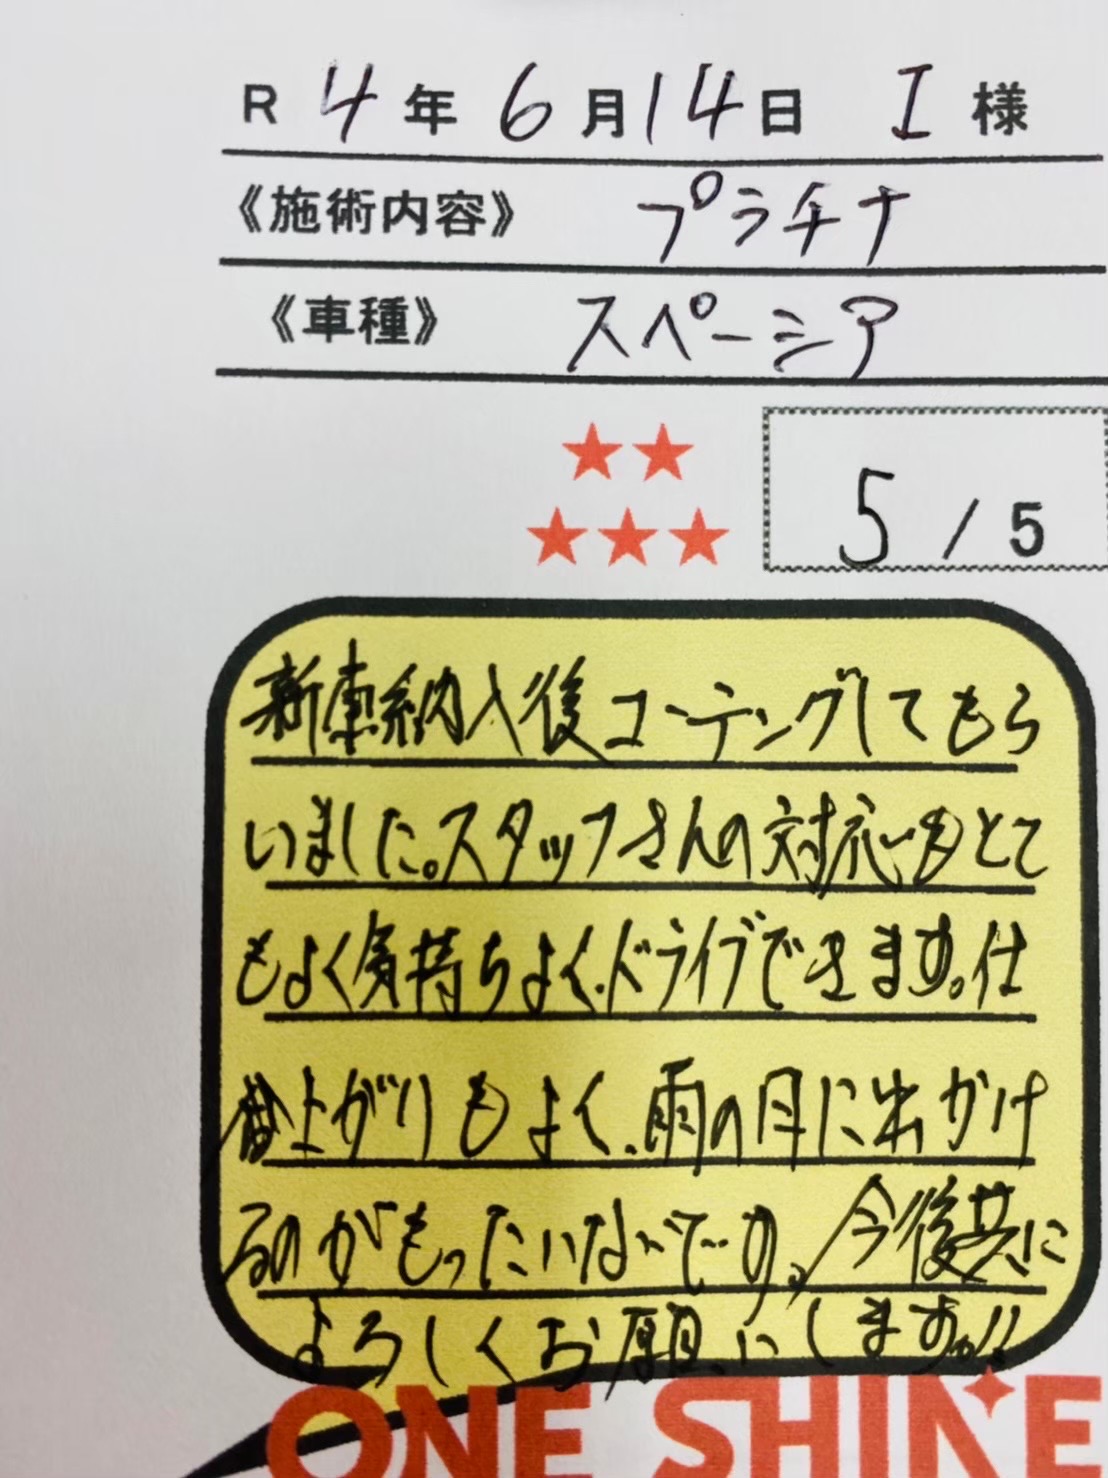 R 4年 6月14日 I様
《施術内容》 プラチナ
《車種》 スペーシア
★★
★★★
5/5
新車納入後コーティングしてもら
いました。スタッフさんの対応もとて
もよく気持ちよく、ドライブできます。仕
上がりもよく、雨の日に出かけ
るのがもったいないです。今後共に
よろしくお願いします。!!
ONE SHINE